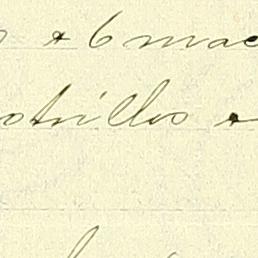 & 6 mac
otrillos &